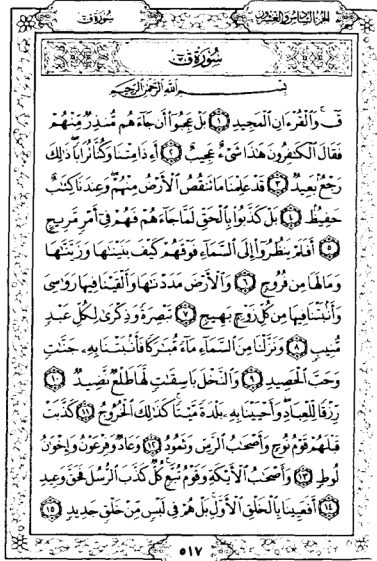 الجزء السادس والعشرون
سورة ق
سُورَةُ ق
بِسْمِ اللَّهِ الرَّحْمَٰنِ الرَّحِيمِ
قٓ ۚ وَالْقُرْءَانِ الْمَجِيدِ ١ بَلْ عَجِبُوٓا أَن جَآءَهُم مُّنذِرٌ مِّنْهُمْ
فَقَالَ الْكَٰفِرُونَ هَٰذَا شَىْءٌ عَجِيبٌ ٢ أَءِذَا مِتْنَا وَكُنَّا تُرَابًا ۖ ذَٰلِكَ
رَجْعٌۢ بَعِيدٌ ٣ قَدْ عَلِمْنَا مَا تَنقُصُ الْأَرْضُ مِنْهُمْ ۖ وَعِندَنَا كِتَٰبٌ
حَفِيظٌۢ ٤ بَلْ كَذَّبُوا بِالْحَقِّ لَمَّا جَآءَهُمْ فَهُمْ فِىٓ أَمْرٍ مَّرِيجٍ
٥ أَفَلَمْ يَنظُرُوٓا إِلَى السَّمَآءِ فَوْقَهُمْ كَيْفَ بَنَيْنَٰهَا وَزَيَّنَّٰهَا
وَمَا لَهَا مِن فُرُوجٍ ٦ وَالْأَرْضَ مَدَدْنَٰهَا وَأَلْقَيْنَا فِيهَا رَوَٰسِىَ
وَأَنۢبَتْنَا فِيهَا مِن كُلِّ زَوْجٍۭ بَهِيجٍ ٧ تَبْصِرَةً وَذِكْرَىٰ لِكُلِّ عَبْدٍ
مُّنِيبٍ ٨ وَنَزَّلْنَا مِنَ السَّمَآءِ مَآءً مُّبَٰرَكًا فَأَنۢبَتْنَا بِهِۦ جَنَّٰتٍ
وَحَبَّ الْحَصِيدِ ٩ وَالنَّخْلَ بَاسِقَٰتٍ لَّهَا طَلْعٌ نَّضِيدٌ ١٠
رِّزْقًا لِّلْعِبَادِ ۖ وَأَحْيَيْنَا بِهِۦ بَلْدَةً مَّيْتًا ۚ كَذَٰلِكَ الْخُرُوجُ ١١ كَذَّبَتْ
قَبْلَهُمْ قَوْمُ نُوحٍ وَأَصْحَٰبُ الرَّسِّ وَثَمُودُ ١٢ وَعَادٌ وَفِرْعَوْنُ وَإِخْوَٰنُ
لُوطٍ ١٣ وَأَصْحَٰبُ الْأَيْكَةِ وَقَوْمُ تُبَّعٍ ۚ كُلٌّ كَذَّبَ الرُّسُلَ فَحَقَّ وَعِيدِ
١٤ أَفَعَيِينَا بِالْخَلْقِ الْأَوَّلِ ۚ بَلْ هُمْ فِى لَبْسٍ مِّنْ خَلْقٍ جَدِيدٍ ١٥
٥١٧